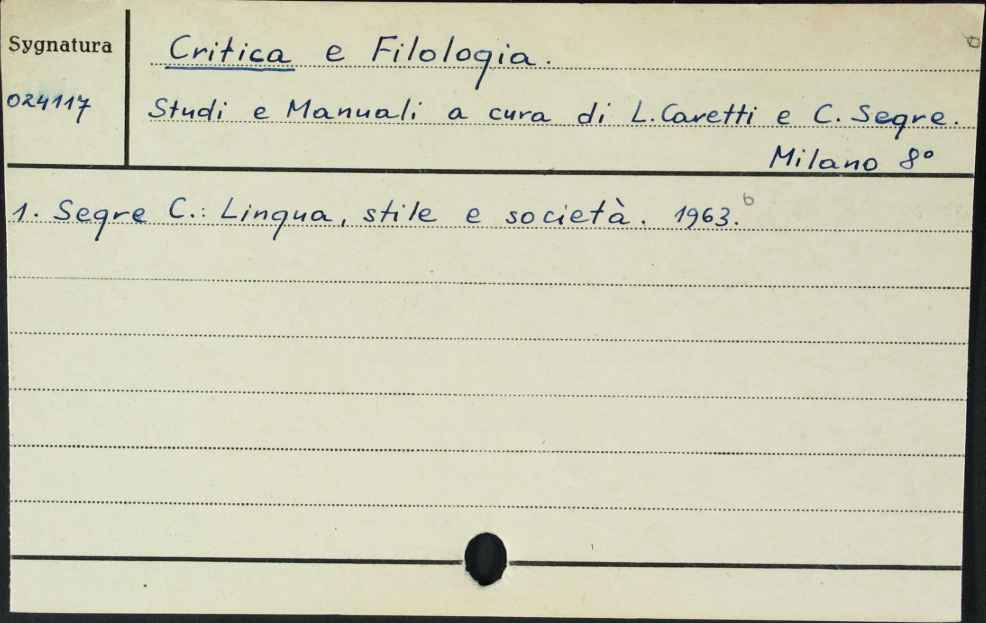 Sygnatura
Critica e Filologia.
024117
Studi e Manuali a cura di L. Caretti e C. Segre.
Milano 8°
1. Segre C.: Lingua, stile e società. 1963. b